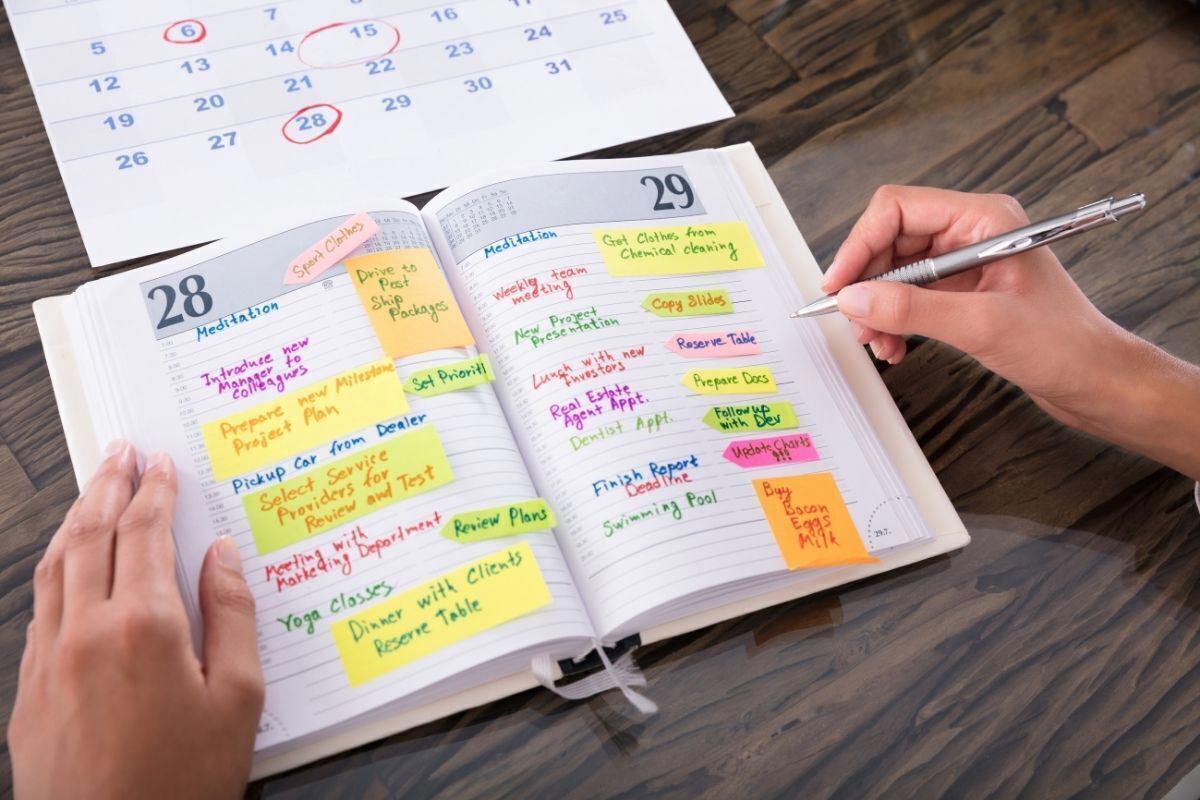 7 8 15 16 17
5 6 14 22 23 24 25
12 13 21 29 30 31
19 20 28
26 27
28
Sport Clothes
Meditation
Drive to
Post
Ship
Packages
Introduce new
Manager to
colleagues
Set Prioriti
Prepare new Milestone
Project Plan
Pickup Car from Dealer
Select Service
Providers for
Review and Test
Review Plans
Meeting with
Marketing Department
Yoga Classes
Dinner with Clients
Reserve Table
29
Meditation
Get Clothes from
Chemical cleaning
Weekly team
meeting
Copy Slides
New Project
Presentation
Reserve Table
Lunch with new
Investors
Prepare Docs
Real Estate
Agent Appt.
Follow up
with Dev
Dentist Appt.
Update Charts
!!!
Finish Report
Deadline
Buy
Bacon
Eggs
Milk
Swimming Pool
29.7.